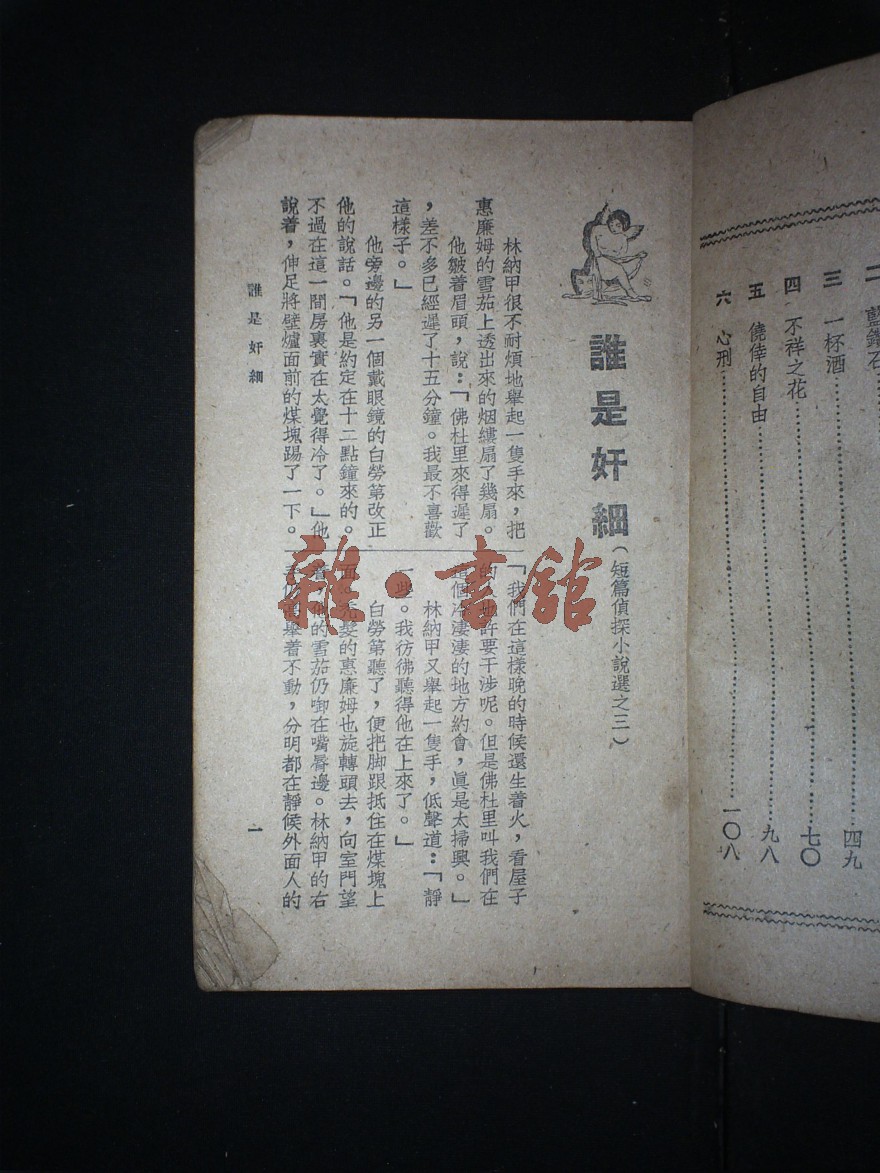 二 藍鑽石
三 一杯酒……………四九
四 不祥之花……………七〇
五 僥倖的自由……………九八
六 心刑……………一〇八
誰是奸細(短篇偵探小說選之三)
林納甲很不耐煩地舉起一隻手來,把
惠廉姆的雪茄上透出來的烟縷扇了幾扇。
他皺着眉頭,說:「佛杜里來得遲了
,差不多已經遲了十五分鐘。我最不喜歡
這樣子。」
他旁邊的另一個戴眼鏡的白勞第改正
他的說話。「他是約定在十二點鐘來的。
不過在這一間房裏實在太覺得冷了。」他
說着,伸足將壁爐面前的煤塊踢了一下。
「我們在這樣晚的時候還生着火,看屋子
的也許要干涉呢。但是佛杜里叫我們在
這個冷淒淒的地方約會,眞是太掃興。」
林納甲又舉起一隻手,低聲道:「靜
一些。我彷彿聽得他在上來了。」
白勞第聽了,便把脚跟抵住在煤塊上
面。禿髮的惠廉姆也旋轉頭去,向室門望
着,他的雪茄仍啣在嘴脣邊。林納甲的右
手仍高舉着不動,分明都在靜候外面人的
誰是奸細
一
雜·書館